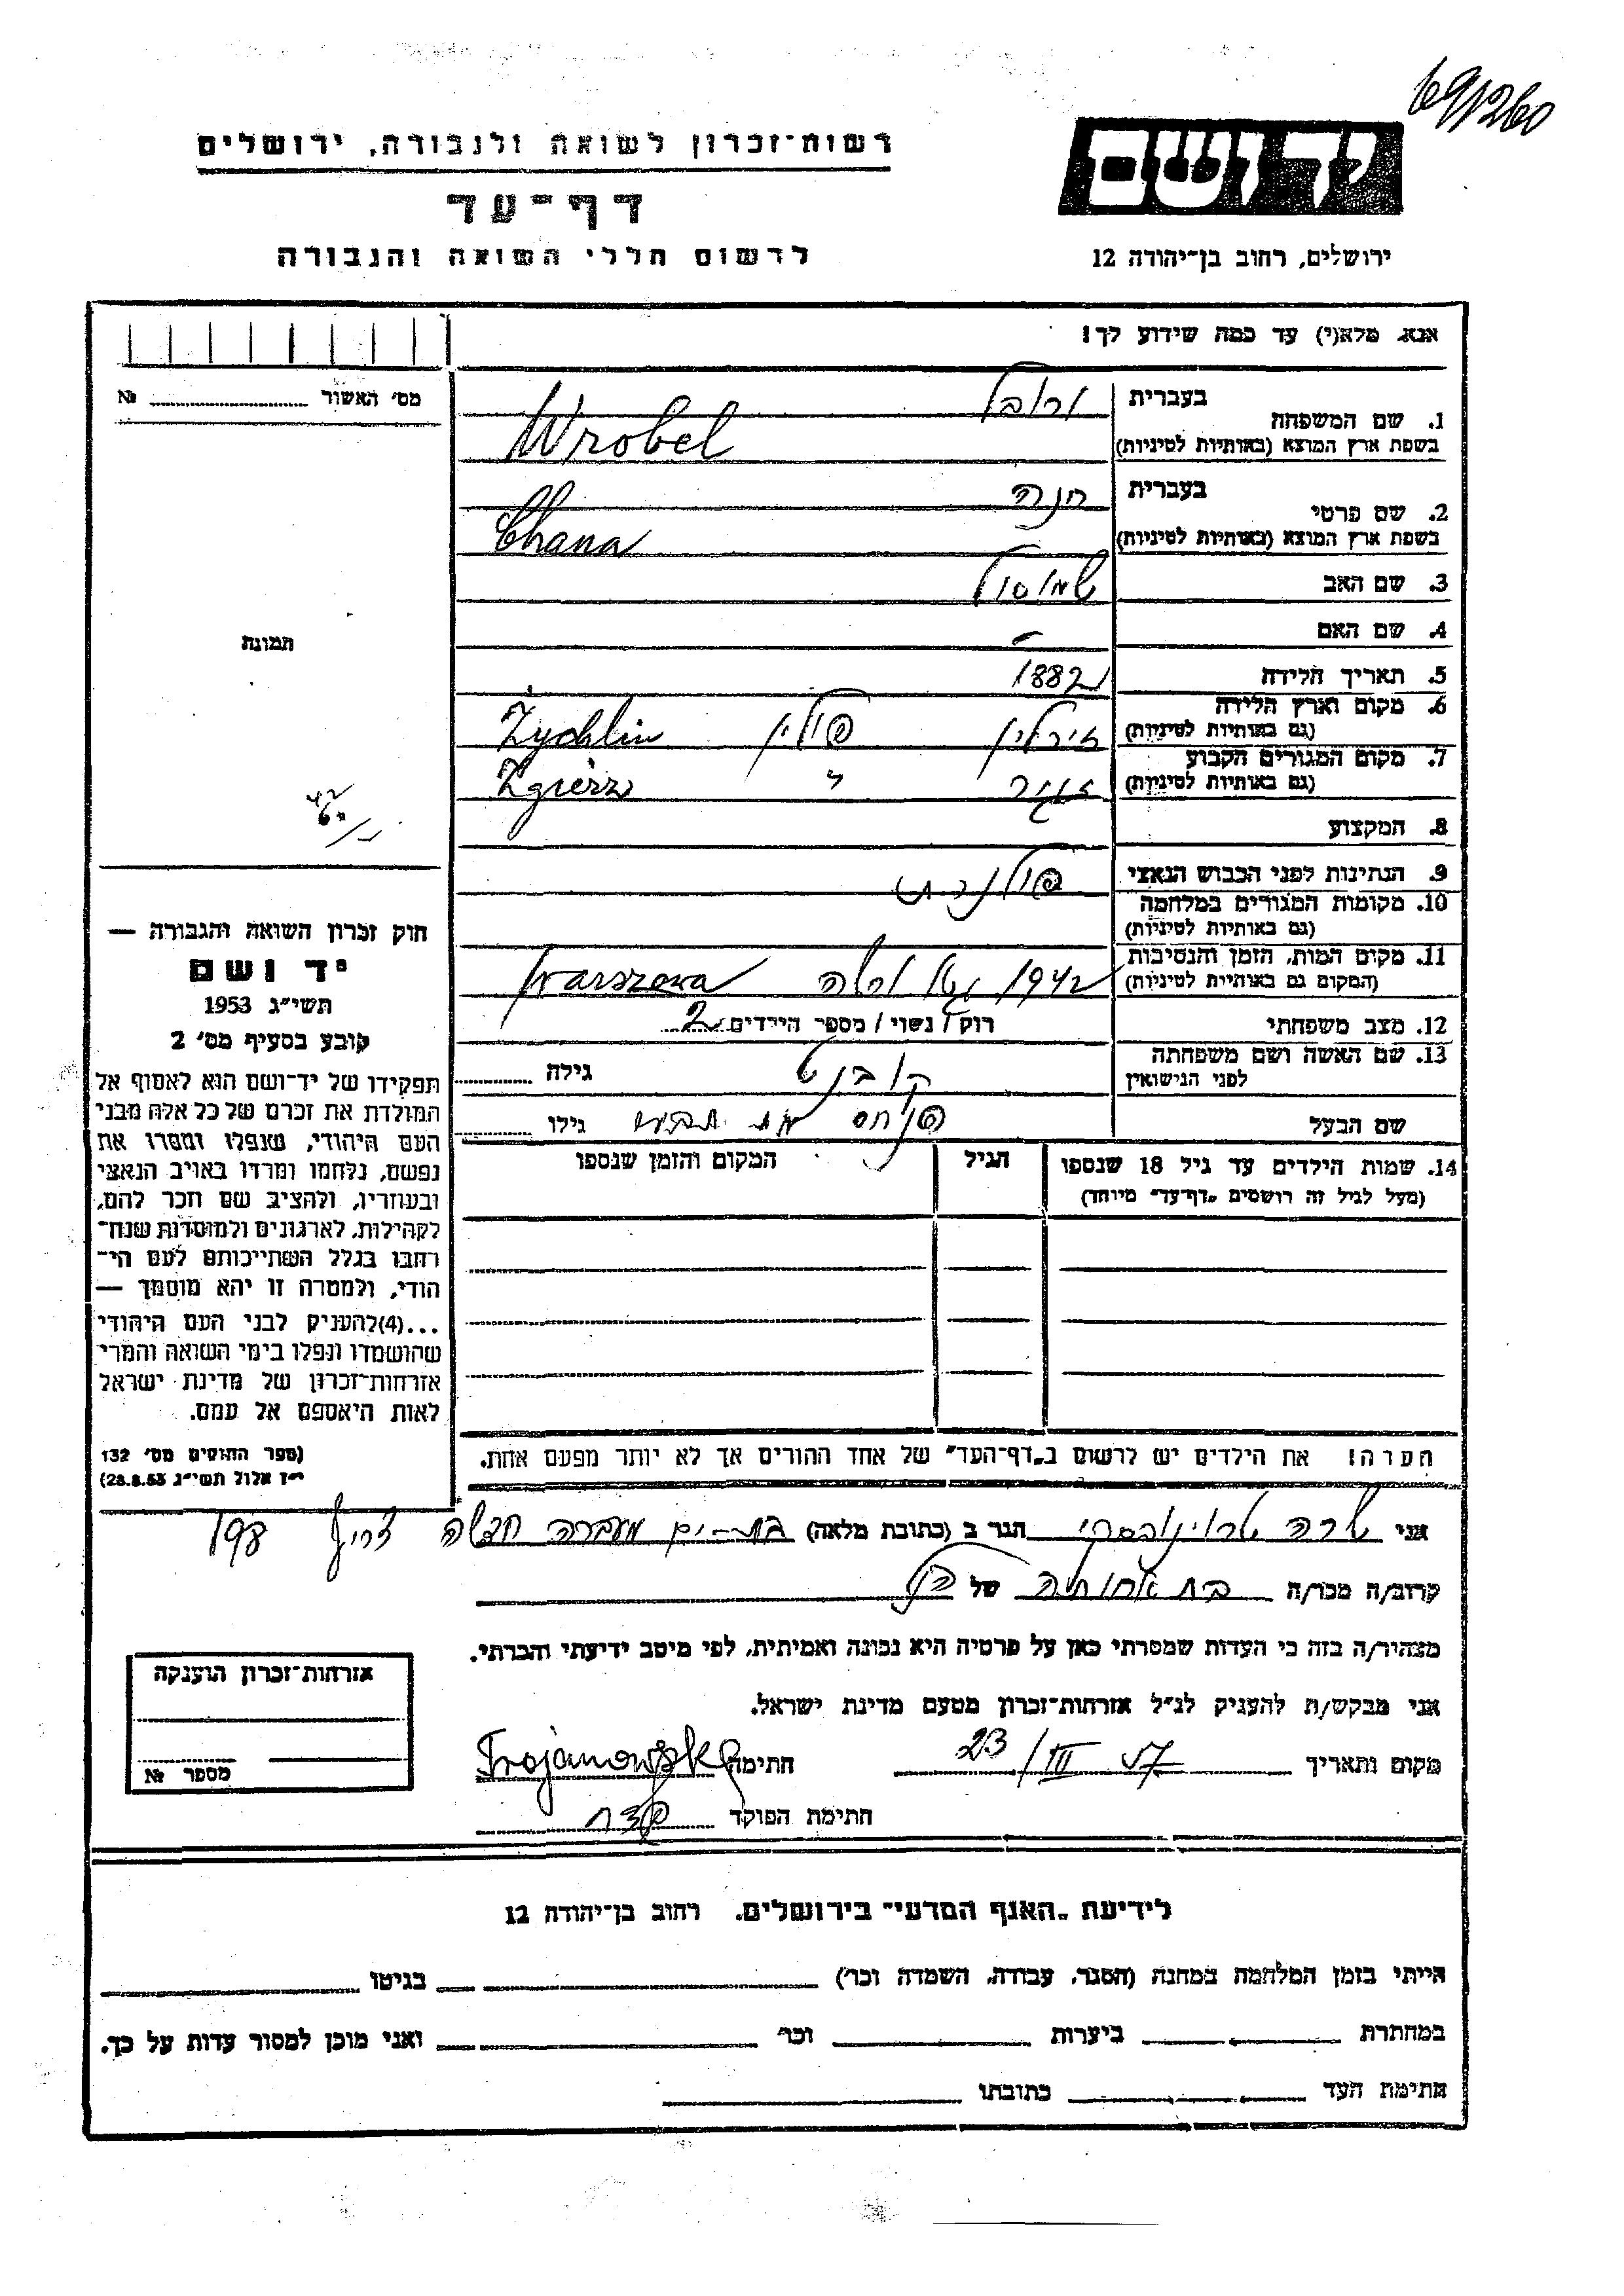 69/260
רשות־זכרון לשואה ולגבורה, ירושלים
יד ושם
דף־עד
לרשום חללי השואה והגבורה
ירושלים, רחוב בן־יהודה 12
אנא, מלא(י) עד כמה שידוע לך!
מס׳ האשור № 
1. שם המשפחה בעברית ורובל
בשפת ארץ המוצא (באותיות לטיניות) Wrobel
2. שם פרטי בעברית חנה
בשפת ארץ המוצא (באותיות לטיניות) Chana
3. שם האב
4. שם האם –
5. תאריך הלידה 1882
6. מקום וארץ הלידה (גם באותיות לטיניות) פולין Żychlin
7. מקום המגורים הקבוע (גם באותיות לטיניות) זגיר " Zgierz
8. המקצוע
9. הנתינות לפני הכבוש הנאצי פולנית
10. מקומות המגורים במלחמה (גם באותיות לטיניות)
11. מקום המות, הזמן והנסיבות (המקום גם באותיות לטיניות) 1942 גטו ורשה Warszawa
12. מצב משפחתי רוק / נשוי / מספר הילדים 2
13. שם האשה ושם משפחתה לפני הנישואין גילה
שם הבעל פנחס גילו
14. שמות הילדים עד גיל 18 שנספו
(מעל לגיל זה רושמים „דף־עד״ מיוחד)
הגיל
המקום והזמן שנספו
תמונה
חוק זכרון השואה והגבורה —
יד ושם
תשי״ג 1953
קובע בסעיף מס׳ 2
תפקידו של יד־ושם הוא לאסוף אל
המולדת את זכרם של כל אלה מבני
העם היהודי, שנפלו ומסרו את
נפשם, נלחמו ומרדו באויב הנאצי
ובעוזריו, ולהציב שם וזכר להם,
לקהילות, לארגונים ולמוסדות שנח־
רבו בגלל השתייכותם לעם הי־
הודי, ולמטרה זו יהא מוסמך —
...(4)להעניק לבני העם היהודי
שהושמדו ונפלו בימי השואה והמרי
אזרחות־זכרון של מדינת ישראל
לאות היאספם אל עמם.
(ספר החוקים מס׳ 132
י״ז אלול תשי״ג 28.8.53)
הערה: את הילדים יש לרשום ב„דף־העד״ של אחד ההורים אך לא יותר מפעם אחת.
אני שרה טרוינובסקי הגר ב (כתובת מלאה) בת־ים מעברה חדשה צריף 198
קרוב/ה מכר/ה בת אחותה של הנ״ל
מצהיר/ה בזה כי העדות שמסרתי כאן על פרטיה היא נכונה ואמיתית, לפי מיטב ידיעתי והכרתי.
אני מבקש/ת להעניק לנ״ל אזרחות־זכרון מטעם מדינת ישראל.
מקום ותאריך 23/III 57 חתימה Trojanowska
חתימת הפוקד
אזרחות־זכרון הוענקה
מספר №
לידיעת „האגף המדעי״ בירושלים, רחוב בן־יהודה 12
הייתי בזמן המלחמה במחנה (הסגר, עבודה, השמדה וכר׳) בגיטו
במחתרת ביערות וכר׳ ואני מוכן למסור עדות על כך.
חתימת העד כתובתו